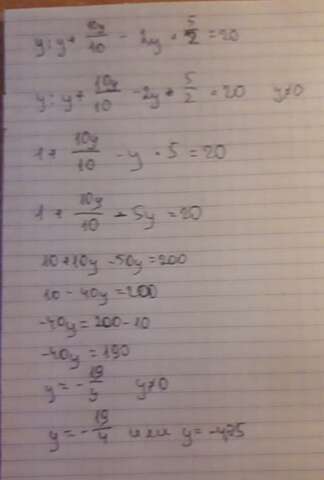 y:y+10y/10-2y·5/2=20
y:y+10y/10-2y·5/2=20 y≠0
1+10y/10-y·5=20
1+10y/10-5y=20
10+10y-50y=200
10-40y=200
-40y=200-10
-40y=190
y=-19/4 y≠0
y=-19/4 или y=-4,75